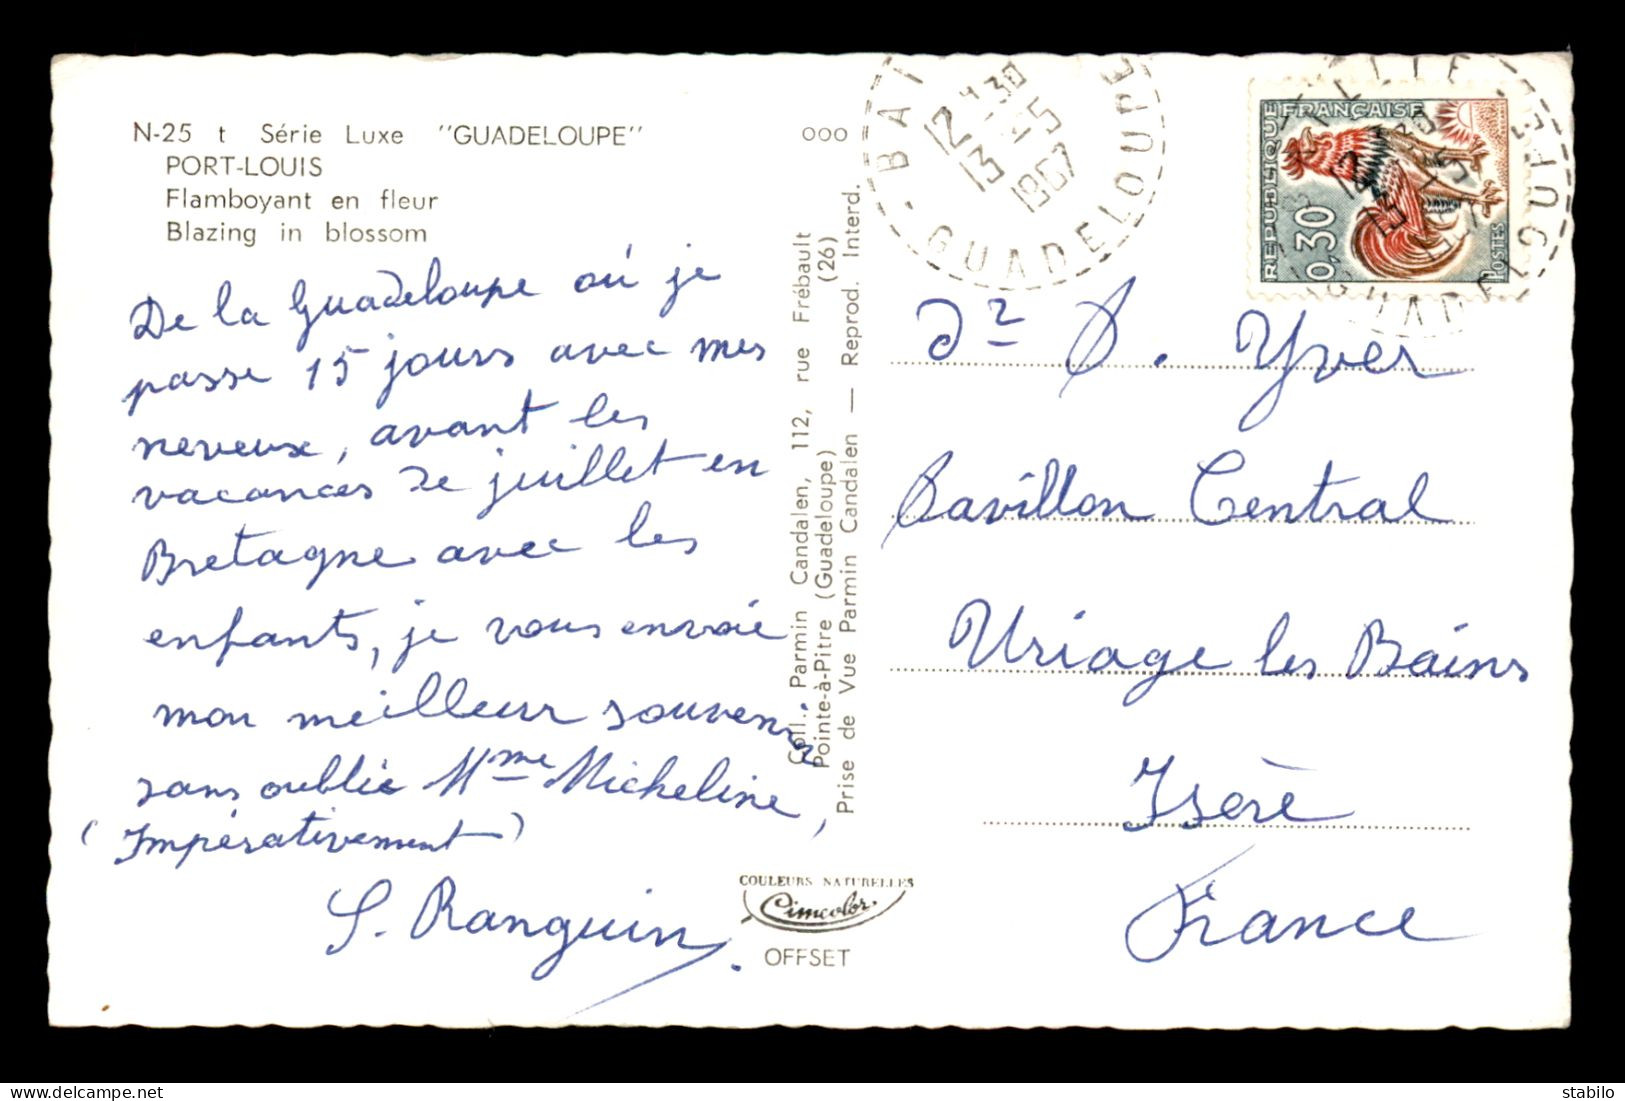 N-25 t Série Luxe "GUADELOUPE"
PORT-LOUIS
Flamboyant en fleur
Blazing in blossom
De la Guadeloupe où je
passe 15 jours avec mes
neveux, avant les
vacances de juillet en
Bretagne avec les
enfants, je vous envoie
mon meilleur souvenir
sans oublier Mme Micheline,
(Impérativement)
S. Ranguin
000
Coll. Parmin Candalen, 112, rue Frébault
Pointe-à-Pitre (Guadeloupe) (26)
Prise de Vue Parmin Candalen — Reprod. Interd.
COULEURS NATURELLES
Cimcolor.
OFFSET
12 H 30
13 -5
1967
GUADELOUPE
REPUBLIQUE FRANÇAISE
0,30
POSTES
Dr P. Yver
Pavillon Central
Uriage les Bains
Isère
France
stabilo